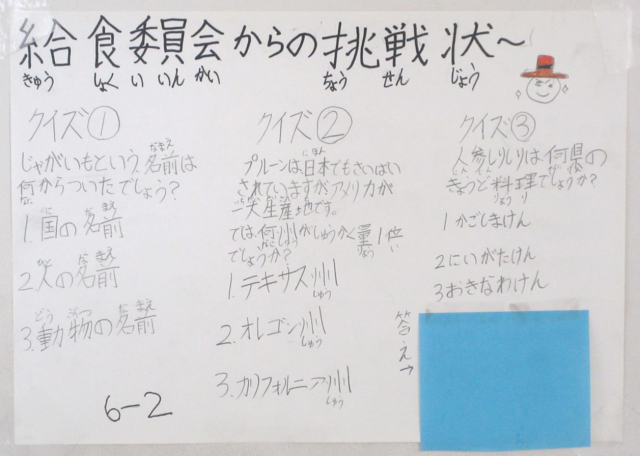 給食委員会からの挑戦状～
きゅう しょく い いん かい ちょう せん じょう
クイズ①
じゃがいもという名前は
何からついたでしょう?
1.国の名前
2.人の名前
3.動物の名前
6-2
クイズ②
プルーンは日本でもさいばい
されていますがアメリカが
一大生産地です。
では、何州がしゅうかく量1位
でしょうか?
1.テキサス州
2.オレゴン州
3.カリフォルニア州
クイズ③
人参しりしりは何県の
きょうど料理でしょうか?
1かごしまけん
2にいがたけん
3おきなわけん
答え→